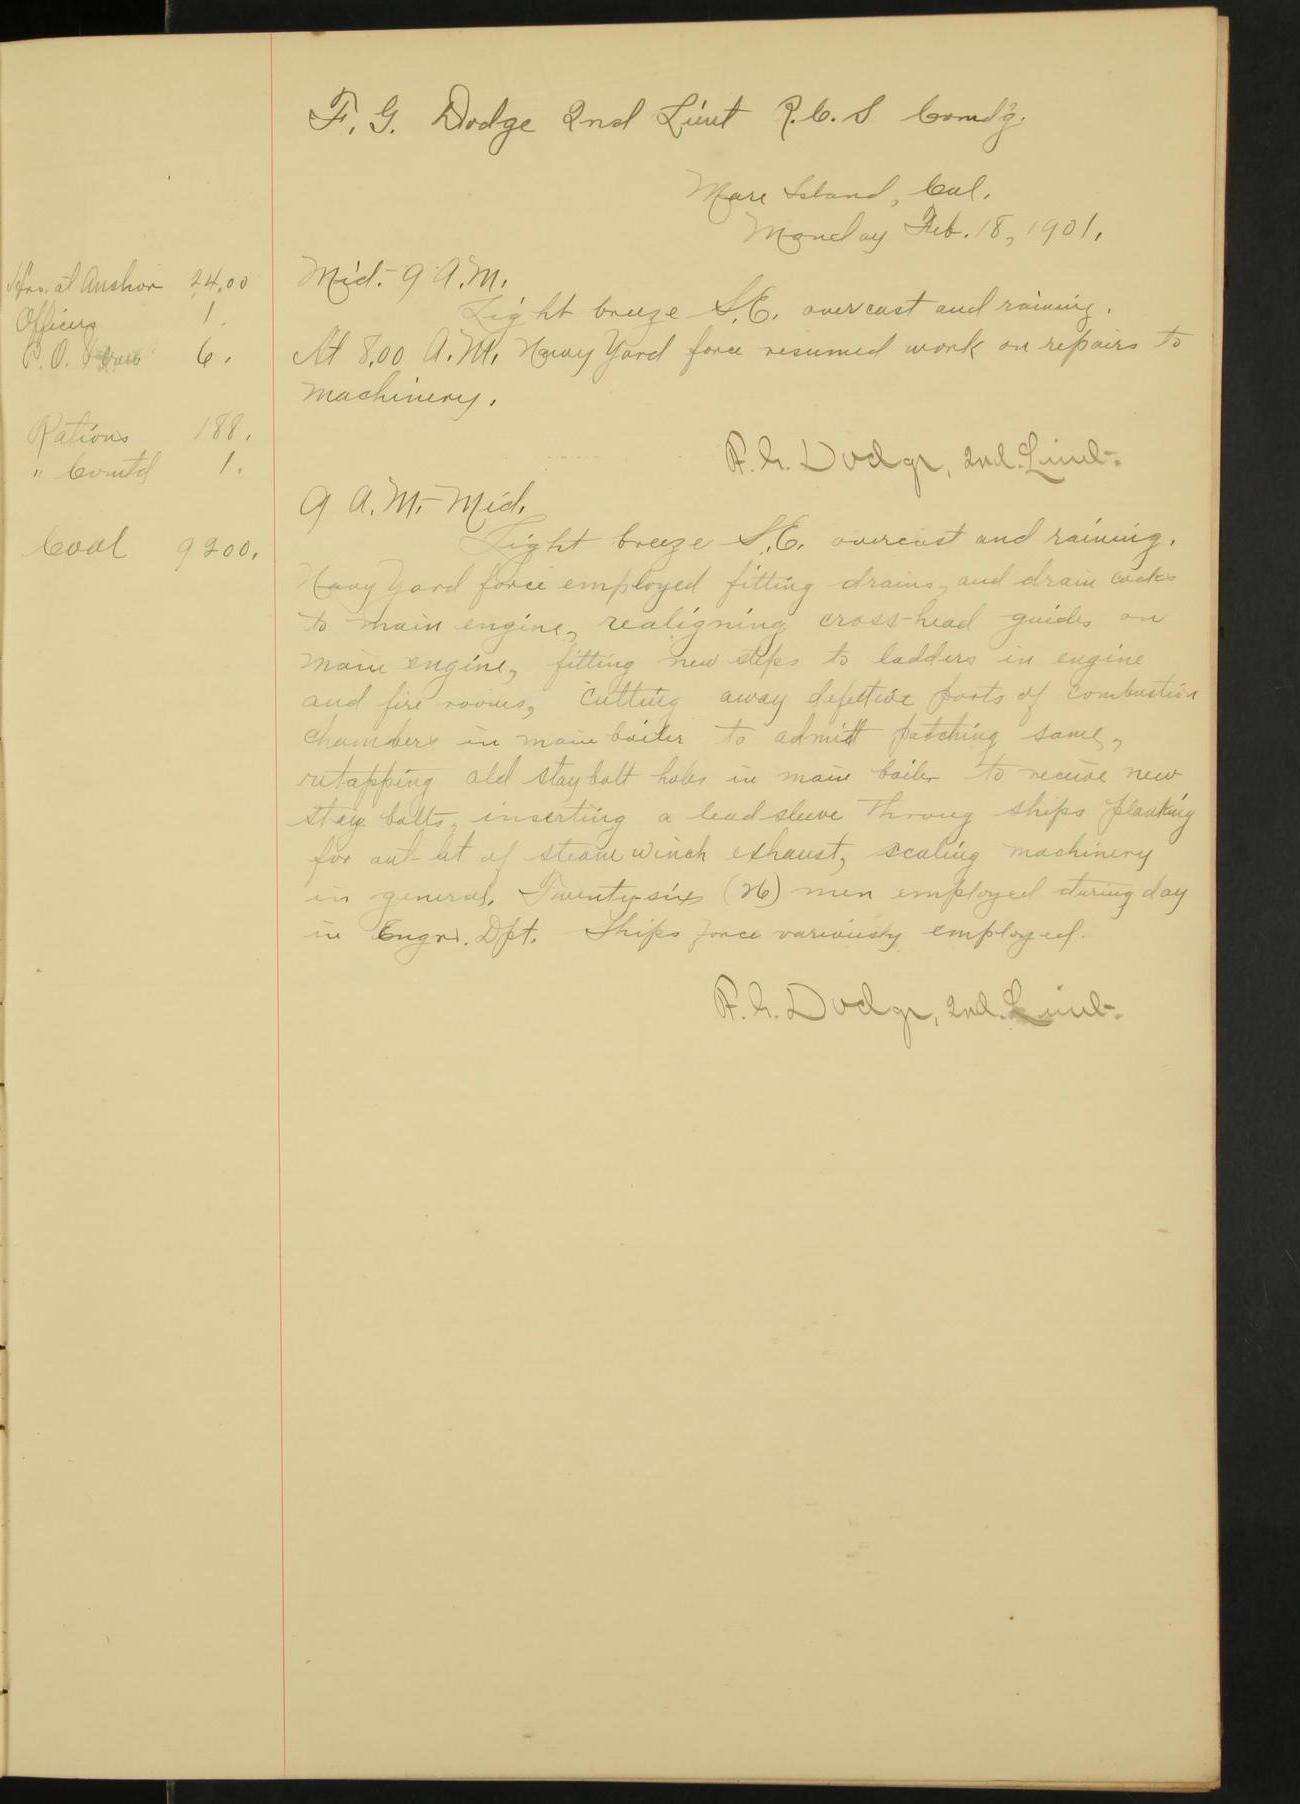 F. G. Dodge 2nd Lieut R.C.S Comd'g.
Mare Island, Cal.
Monday Feb. 18, 1901.
Hrs. at Anchor 24.00
Officers 1.
P. O. & Crew 6.
Rations 188.
" Comtd 1.
Coal 9200.
Mid.- 9 A.M.
Light breeze S.E. overcast and raining.
At 8.00 A.M. Navy Yard force resumed work on repairs to
machinery.
F. G. Dodge, 2nd. Lieut.
9 A.M.- Mid.
Light breeze S.E. overcast and raining.
Navy Yard force employed fitting drains, and drain cocks
to main engine, realigning cross-head guides on
main engine, fitting new steps to ladders in engine
and fire rooms, cutting away defective parts of combustion
chambers in main boiler to admitt patching same,
retapping old stay bolt holes in main boiler to receive new
stay bolts, inserting a lead sleeve throug ships planking
for out-let of steam winch exhaust, scaling machinery
in general. Twenty-six (26) men employed during day
in Engr. Dpt. Ships force variously employed.
F. G. Dodge, 2nd. Lieut.